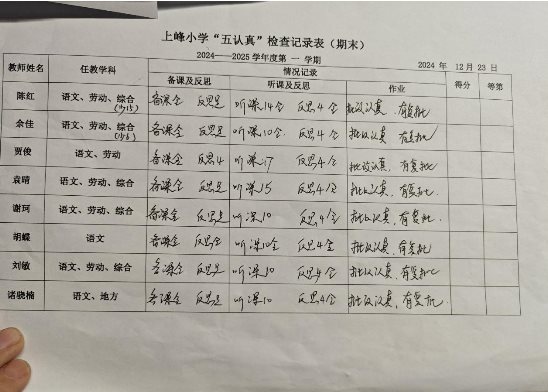 上峰小学“五认真”检查记录表（期末）
2024——2025学年度第 一 学期 2024 年 12 月 23 日
教师姓名 任教学科 情况记录 得分 等第
备课及反思 听课及反思 作业
陈红 语文、劳动、综合 备课全 反思足 听课14全 反思4全 批改认真，有复批
(少15)
余佳 语文、劳动、综合 备课全 反思足 听课10全 反思4全 批改认真 有复批
贾俊 语文、劳动 备课全 反思4 听课17 反思4全 批改认真，有复批
袁晴 语文、劳动、综合 备课全 反思足 听课15 反思4全 批改认真，有复批
谢珂 语文、劳动、综合 备课全 反思足 听课10 反思4全 批改认真，有复批
胡蝶 语文 备课全 反思全 听课10全 反思4全 批改认真，有复批
刘敏 语文、劳动、综合 备课全 反思足 听课10 反思4全 批改认真，有复批
诸晓楠 语文、地方 备课全 反思足 听课10 反思4全 批改认真，有复批